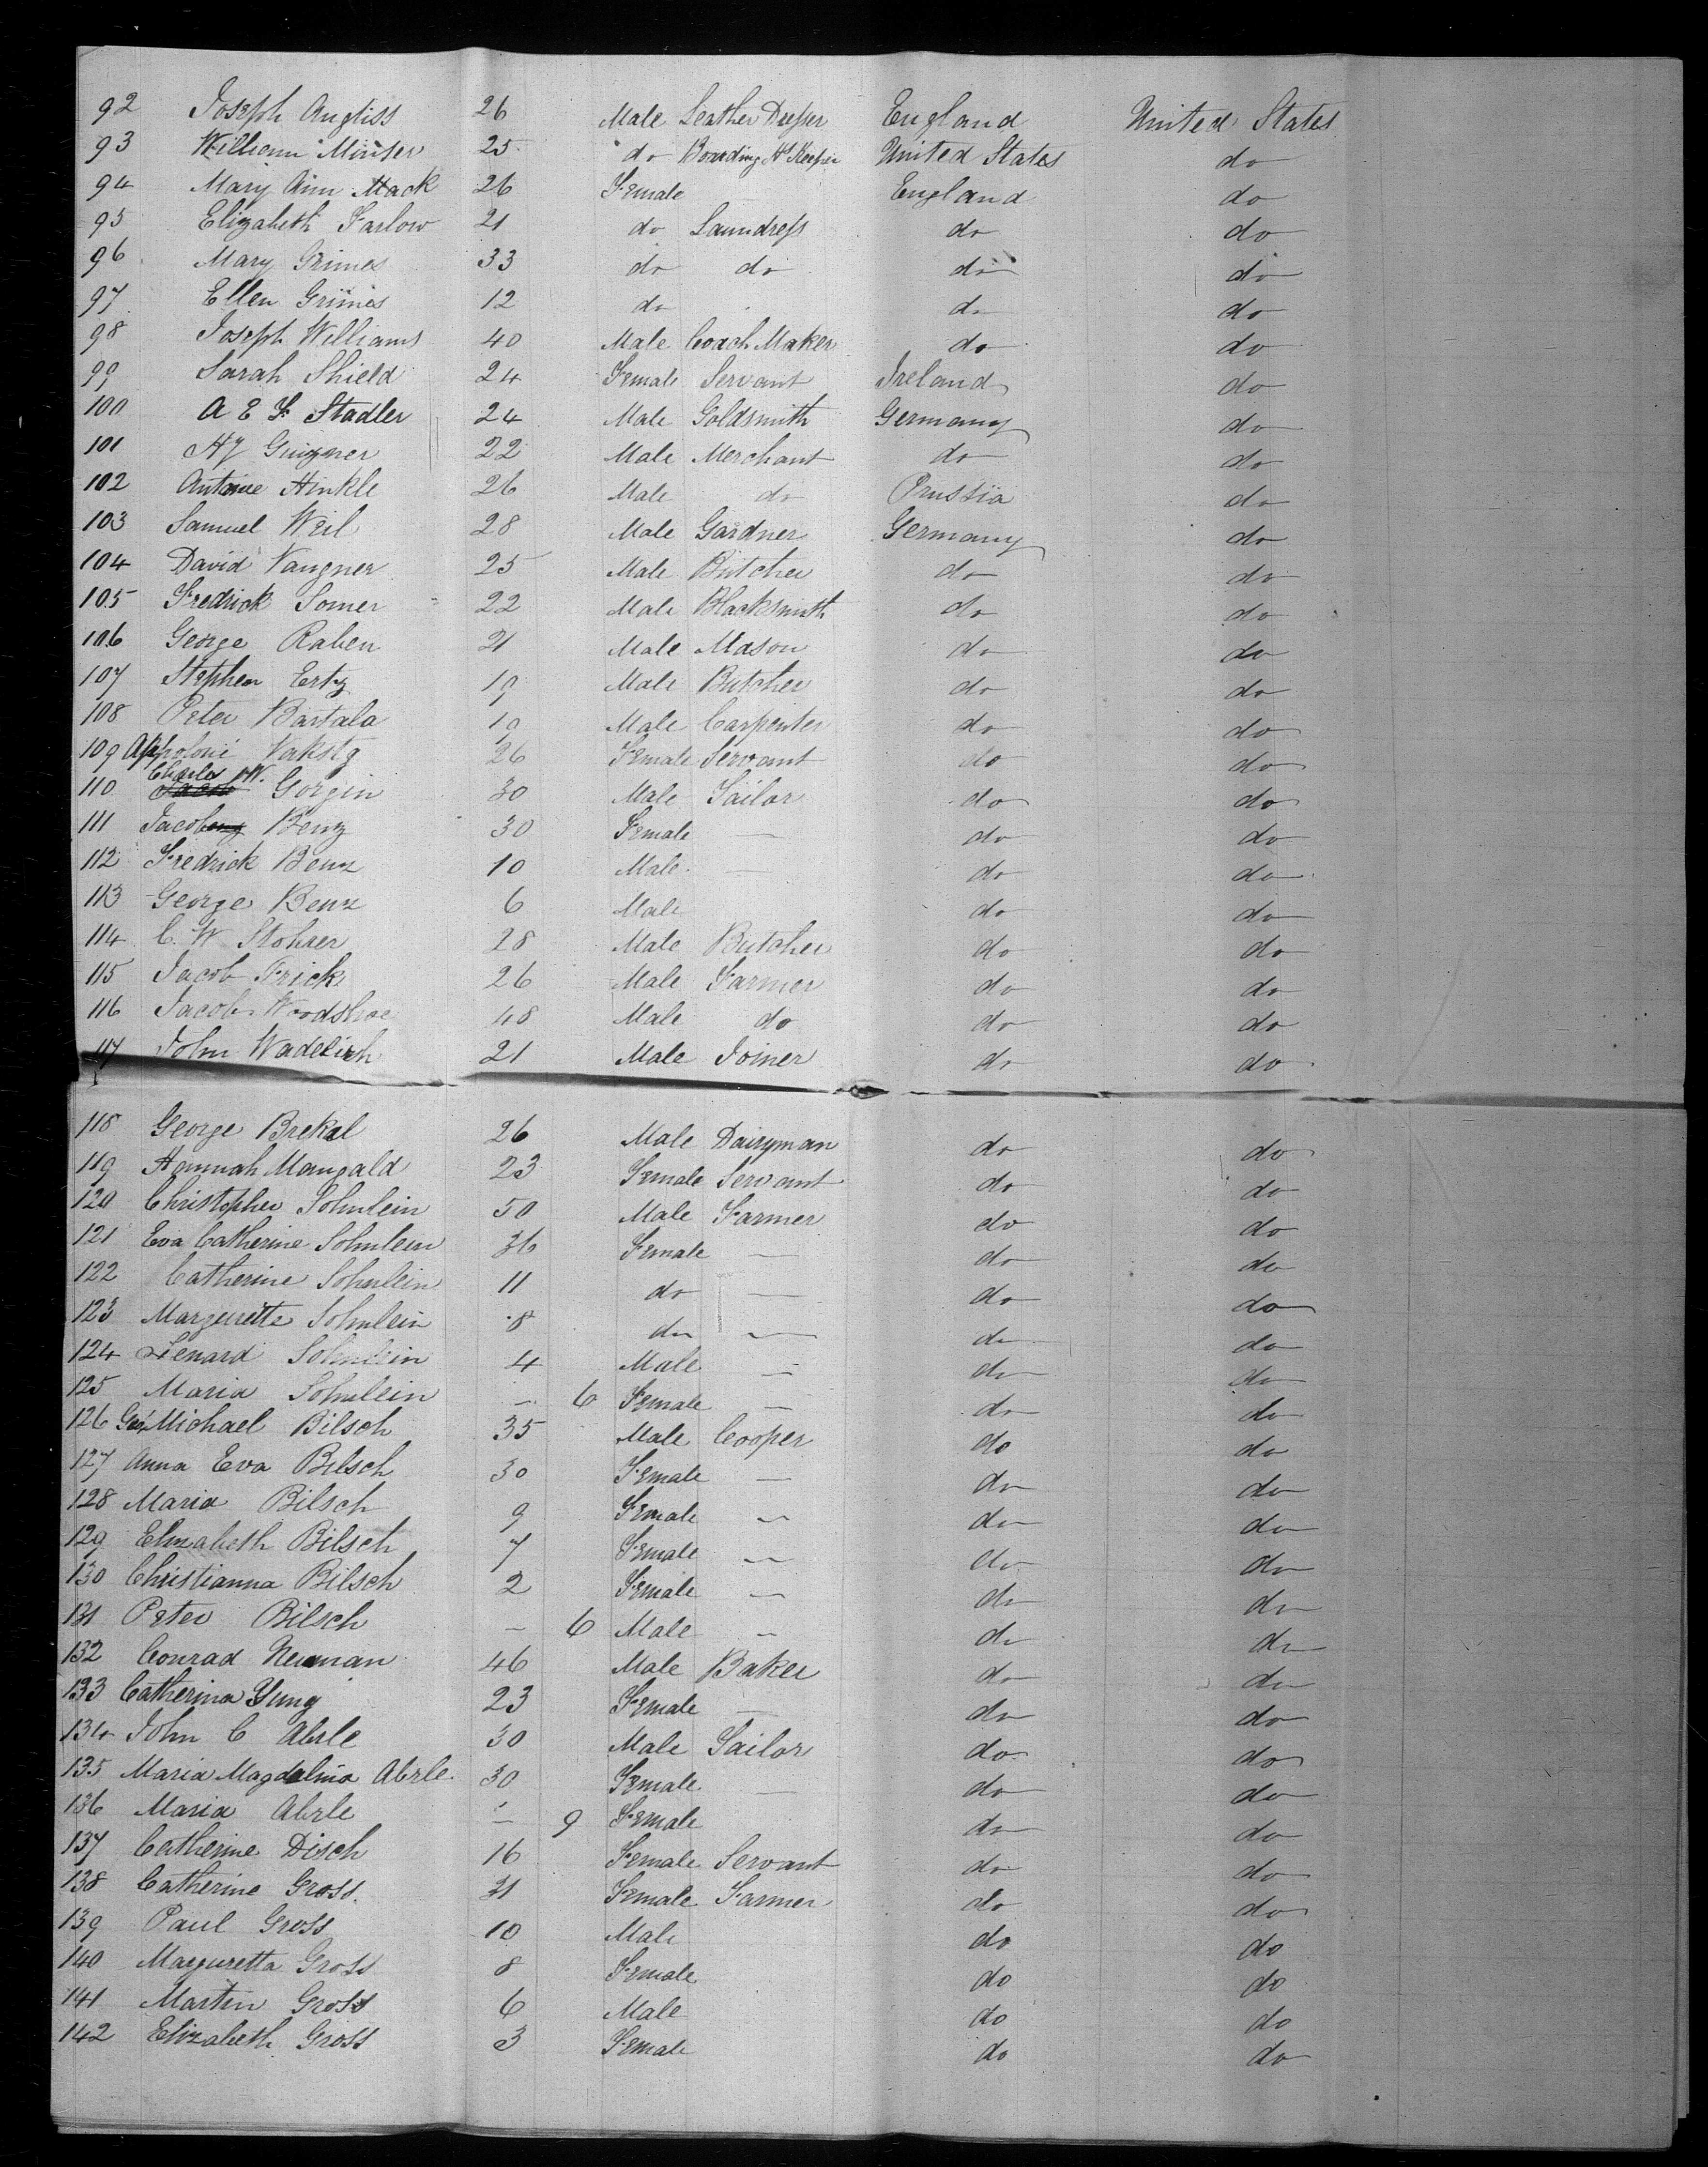 92 Joseph Angliss 26 Male Leather Dresser England United States
93 William Minser 25 do Boarding Hs Keeper United States do
94 Mary Ann Mack 26 Female England do
95 Elizabeth Farlow 21 do Laundress do do
96 Mary Grimes 33 do do do do
97 Ellen Grimes 12 do do do
98 Joseph Williams 40 Male Coach Maker do do
99 Sarah Shield 24 Female Servant Ireland do
100 A E F Stadler 24 Male Goldsmith Germany do
101 22 Male Merchant do do
102 Antoine Hinkle 26 Male do Prussia do
103 Samuel Weil 28 Male Gardner Germany do
104 David Vaugner 25 Male Butcher do do
105 Fredrick Somer 22 Male Blacksmith do do
106 George Raben 21 Male Mason do do
107 Stephen Ertz 19 Male Butcher do do
108 Peter Bartala 19 Male Carpenter do do
109 Appoloni 26 Female Servant do do
110 Charles W. Gorgin 30 Male Tailor do do
111 Jacob Benz 30 Female — do do
112 Fredrick Benz 10 Male — do do
113 George Benz 6 Male do do
114 C. W Stohrer 28 Male Butcher do do
115 Jacob Frick 26 Male Farmer do do
116 Jacob Woodshoe 48 Male do do do
117 John Wadelich 21 Male Joiner do do
118 George Brekel 26 Male Dairyman do do
119 Hannah Mangald 23 Female Servant do do
120 Christopher Sohnlein 50 Male Farmer do do
121 Eva Catherine Sohnlein 36 Female — do do
122 Catherine Sohnlein 11 do — do do
123 Margurette Sohnlein 8 do — do do
124 Lenard Sohnlein 4 Male — do do
125 Maria Sohnlein — 6 Female — do do
126 Geo. Michael Bilsch 35 Male Cooper do do
127 Anna Eva Bilsch 30 Female — do do
128 Maria Bilsch 9 Female — do do
129 Elizabeth Bilsch 7 Female — do do
130 Christianna Bilsch 2 Female — do do
131 Peter Bilsch — 6 Male — do do
132 Conrad Neuman 46 Male Baker do do
133 Catherina Yung 23 Female — do do
134 John C Abrle 30 Male Tailor do do
135 Maria Magdalina Abrle 30 Female do do
136 Maria Abrle — 9 Female do do
137 Catherine Disch 16 Female Servant do do
138 Catherine Gross 31 Female Farmer do do
139 Paul Gross 10 Male do do
140 Marguretta Gross 8 Female do do
141 Martin Gross 6 Male do do
142 Elizabeth Gross 3 Female do do